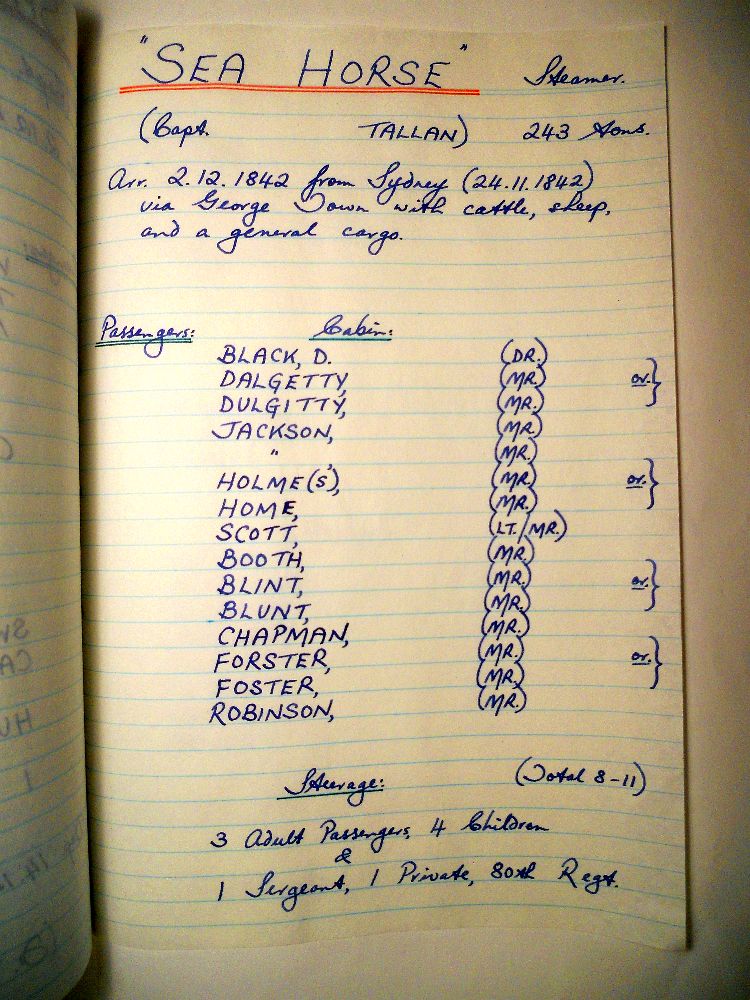 "SEA HORSE" Steamer.
(Capt. TALLAN) 243 Tons.
Arr. 2.12.1842 from Sydney (24.11.1842)
via George Town with cattle, sheep,
and a general cargo.
Passengers: Cabin:
BLACK, D. (DR.)
DALGETTY, (MR.) or.}
DULGITTY, (MR.)
JACKSON, (MR.)
" , (MR.)
HOLME(S), (MR.) or.}
HOME, (MR.)
SCOTT, (LT./MR.)
BOOTH, (MR.)
BLINT, (MR.) or.}
BLUNT, (MR.)
CHAPMAN, (MR.)
FORSTER, (MR.) or.}
FOSTER, (MR.)
ROBINSON, (MR.)
Steerage: (Total 8-11)
3 Adult Passengers, 4 Children
&
1 Sergeant, 1 Private, 80th Regt.